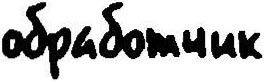 обработчик